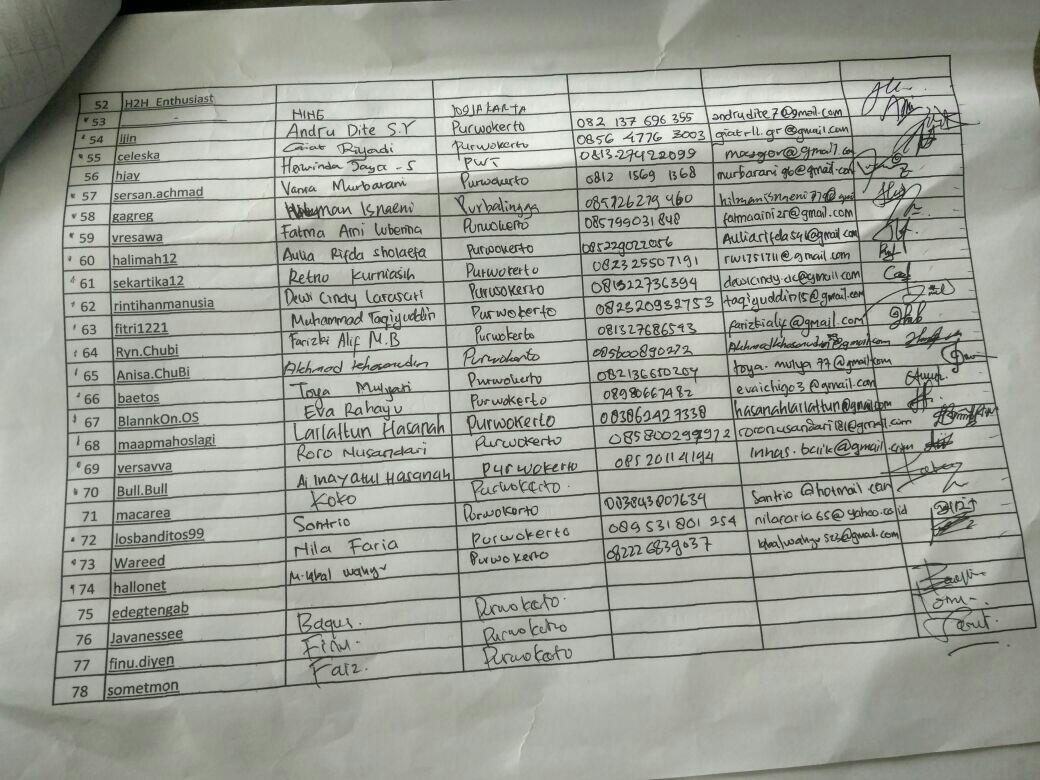 52 H2H_Enthusiast HIHE JOGJAKARTA
53 - Andru Dite S.Y Purwokerto 082 137 696 355 andrydite7@gmail.com
54 iin Giat Riyadi Purwokerto 0856 4776 3003 giatrll.gr@gmail.com
55 celeska Herwinda Jaya - S PWT 081327422099 masgor@gmail.com
56 hjay Vanra Murbarani Purwokerto 0812 1569 1368 murbarani96@gmail.com
57 sersan.achmad Isnaeni Purbalingga 085726279460
58 gagreg Fatma Aini Lubenna Purwokerto 085799031848 fatmaaini25@gmail.com
59 vresawa Aulia Rifda sholaefa Purwokerto 085229022056
60 halimah12 Retno Kurniasih Purwokerto 082325507191 rwi751711@gmail.com
61 sekartika12 Dewi Cindy Larasati Purwokerto 081322736394 dewicindy.dc@gmail.com
62 rintihanmanusia Muhammad Taqiyuddin Purwokerto 082320932753 taqiyuddin15@gmail.com
63 fitri1221 Farizki Alif M.B Purwokerto 081327686593 farizkialif@gmail.com
64 Ryn.Chubi Akhmad Khasanudin Purwokerto 085600890272
65 Anisa.ChuBi Toya Mulyati Purwokerto 082136650204 toya.mulya77@gmail.com
66 baetos Eva Rahayu Purwokerto 08980667482 evaichigo3@gmail.com
67 BlannkOn.OS Lailattun Hasanah Purwokerto 083862427338 hasanahlailattun@gmail.com
68 maapmahoslagi Roro Nusandari Purwokerto 085800299972 roronusandari181@gmail.com
69 versavva Ai Inayatul Hasanah Purwokerto 08520114194 Innas.baik@gmail.com
70 Bull.Bull Koko Purwokerto
71 macarea Santrio Purwokerto 083843807634 Santrio@hotmail.com
72 losbanditos99 Nila Faria Purwokerto 089531801254 nilararia65@yahoo.co.id
73 Wareed M. Iqbal Wahyu Purwokerto 082226839037 iqbalwahyu523@gmail.com
74 hallonet
75 edegtengab Bagus. Purwokerto.
76 Javanessee Finu. Purwokerto
77 finu.diyen Faiz. Purwokerto
78 sometmon